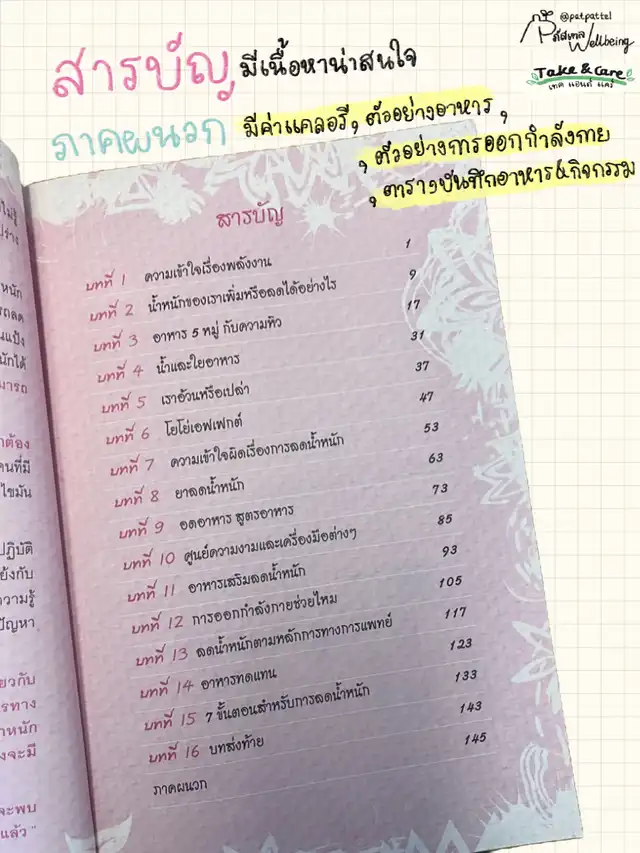 @patpattel
ภัสเทล Wellbeing
Take & Care
เทค แอนด์ แคร์
สารบัญ มีเนื้อหาน่าสนใจ
ภาคผนวก มีค่าแคลอรี, ตัวอย่างอาหาร,
, ตัวอย่างการออกกำลังกาย
, ตารางบันทึกอาหาร&กิจกรรม
สารบัญ
บทที่ 1 ความเข้าใจเรื่องพลังงาน 1
บทที่ 2 น้ำหนักของเราเพิ่มหรือลดได้อย่างไร 9
บทที่ 3 อาหาร 5 หมู่ กับความหิว 17
บทที่ 4 น้ำและใยอาหาร 31
บทที่ 5 เราอ้วนหรือเปล่า 37
บทที่ 6 โยโย่เอฟเฟกต์ 47
บทที่ 7 ความเข้าใจผิดเรื่องการลดน้ำหนัก 53
บทที่ 8 ยาลดน้ำหนัก 63
บทที่ 9 อดอาหาร สูตรอาหาร 73
บทที่ 10 ศูนย์ความงามและเครื่องมือต่างๆ 85
บทที่ 11 อาหารเสริมลดน้ำหนัก 93
บทที่ 12 การออกกำลังกายช่วยไหม 105
บทที่ 13 ลดน้ำหนักตามหลักการทางการแพทย์ 117
บทที่ 14 อาหารทดแทน 123
บทที่ 15 7 ขั้นตอนสำหรับการลดน้ำหนัก 133
บทที่ 16 บทส่งท้าย 143
ภาคผนวก 145